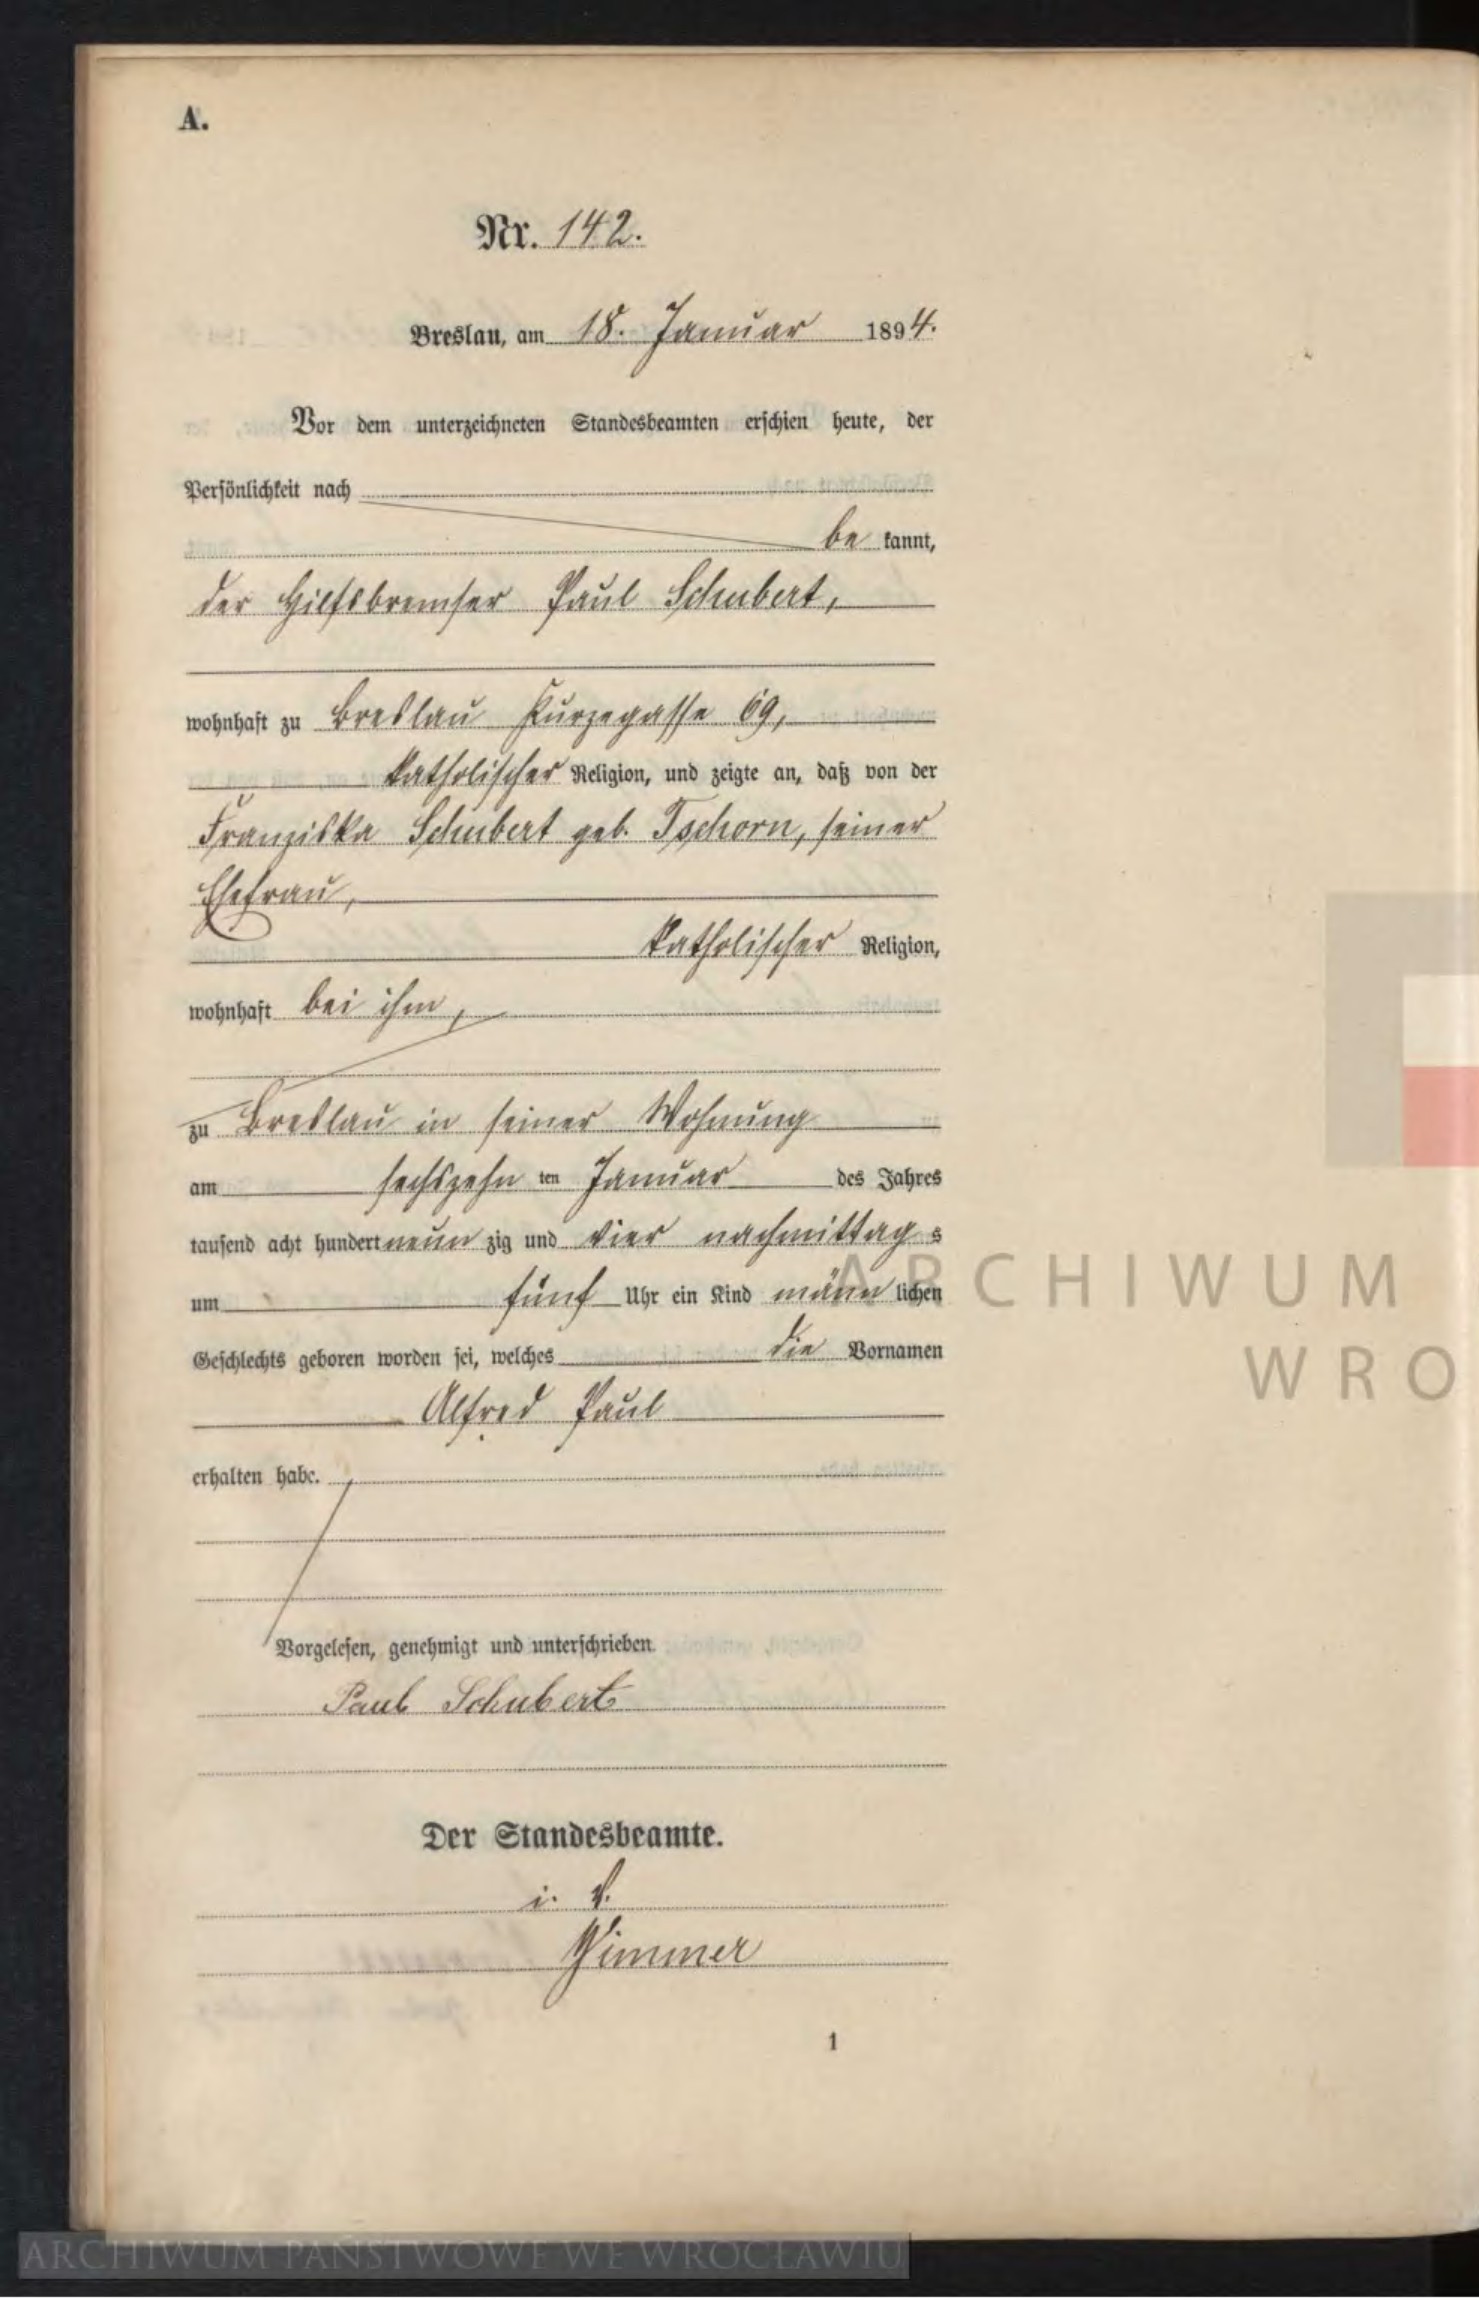 A.
Nr. 142.
Breslau, am 18. Januar 1894.
Vor dem unterzeichneten Standesbeamten erschien heute, der
Persönlichkeit nach
be kannt,
der Hilfsbremser Paul Schubert,
wohnhaft zu Breslau Kurzegasse 69,
katholischer Religion, und zeigte an, daß von der
Franziska Schubert geb. Tschorn, seiner
Ehefrau,
katholischer Religion,
wohnhaft bei ihm,
zu Breslau in seiner Wohnung
am sechszehn ten Januar des Jahres
tausend acht hundert neun zig und vier nachmittag s
um fünf Uhr ein Kind männ lichen
Geschlechts geboren worden sei, welches die Vornamen
Alfred Paul
erhalten habe.
Vorgelesen, genehmigt und unterschrieben.
Paul Schubert
Der Standesbeamte.
i. V.
1
ARCHIWUM
WRO
ARCHIWUM PAŃSTWOWE WE WROCŁAWIU